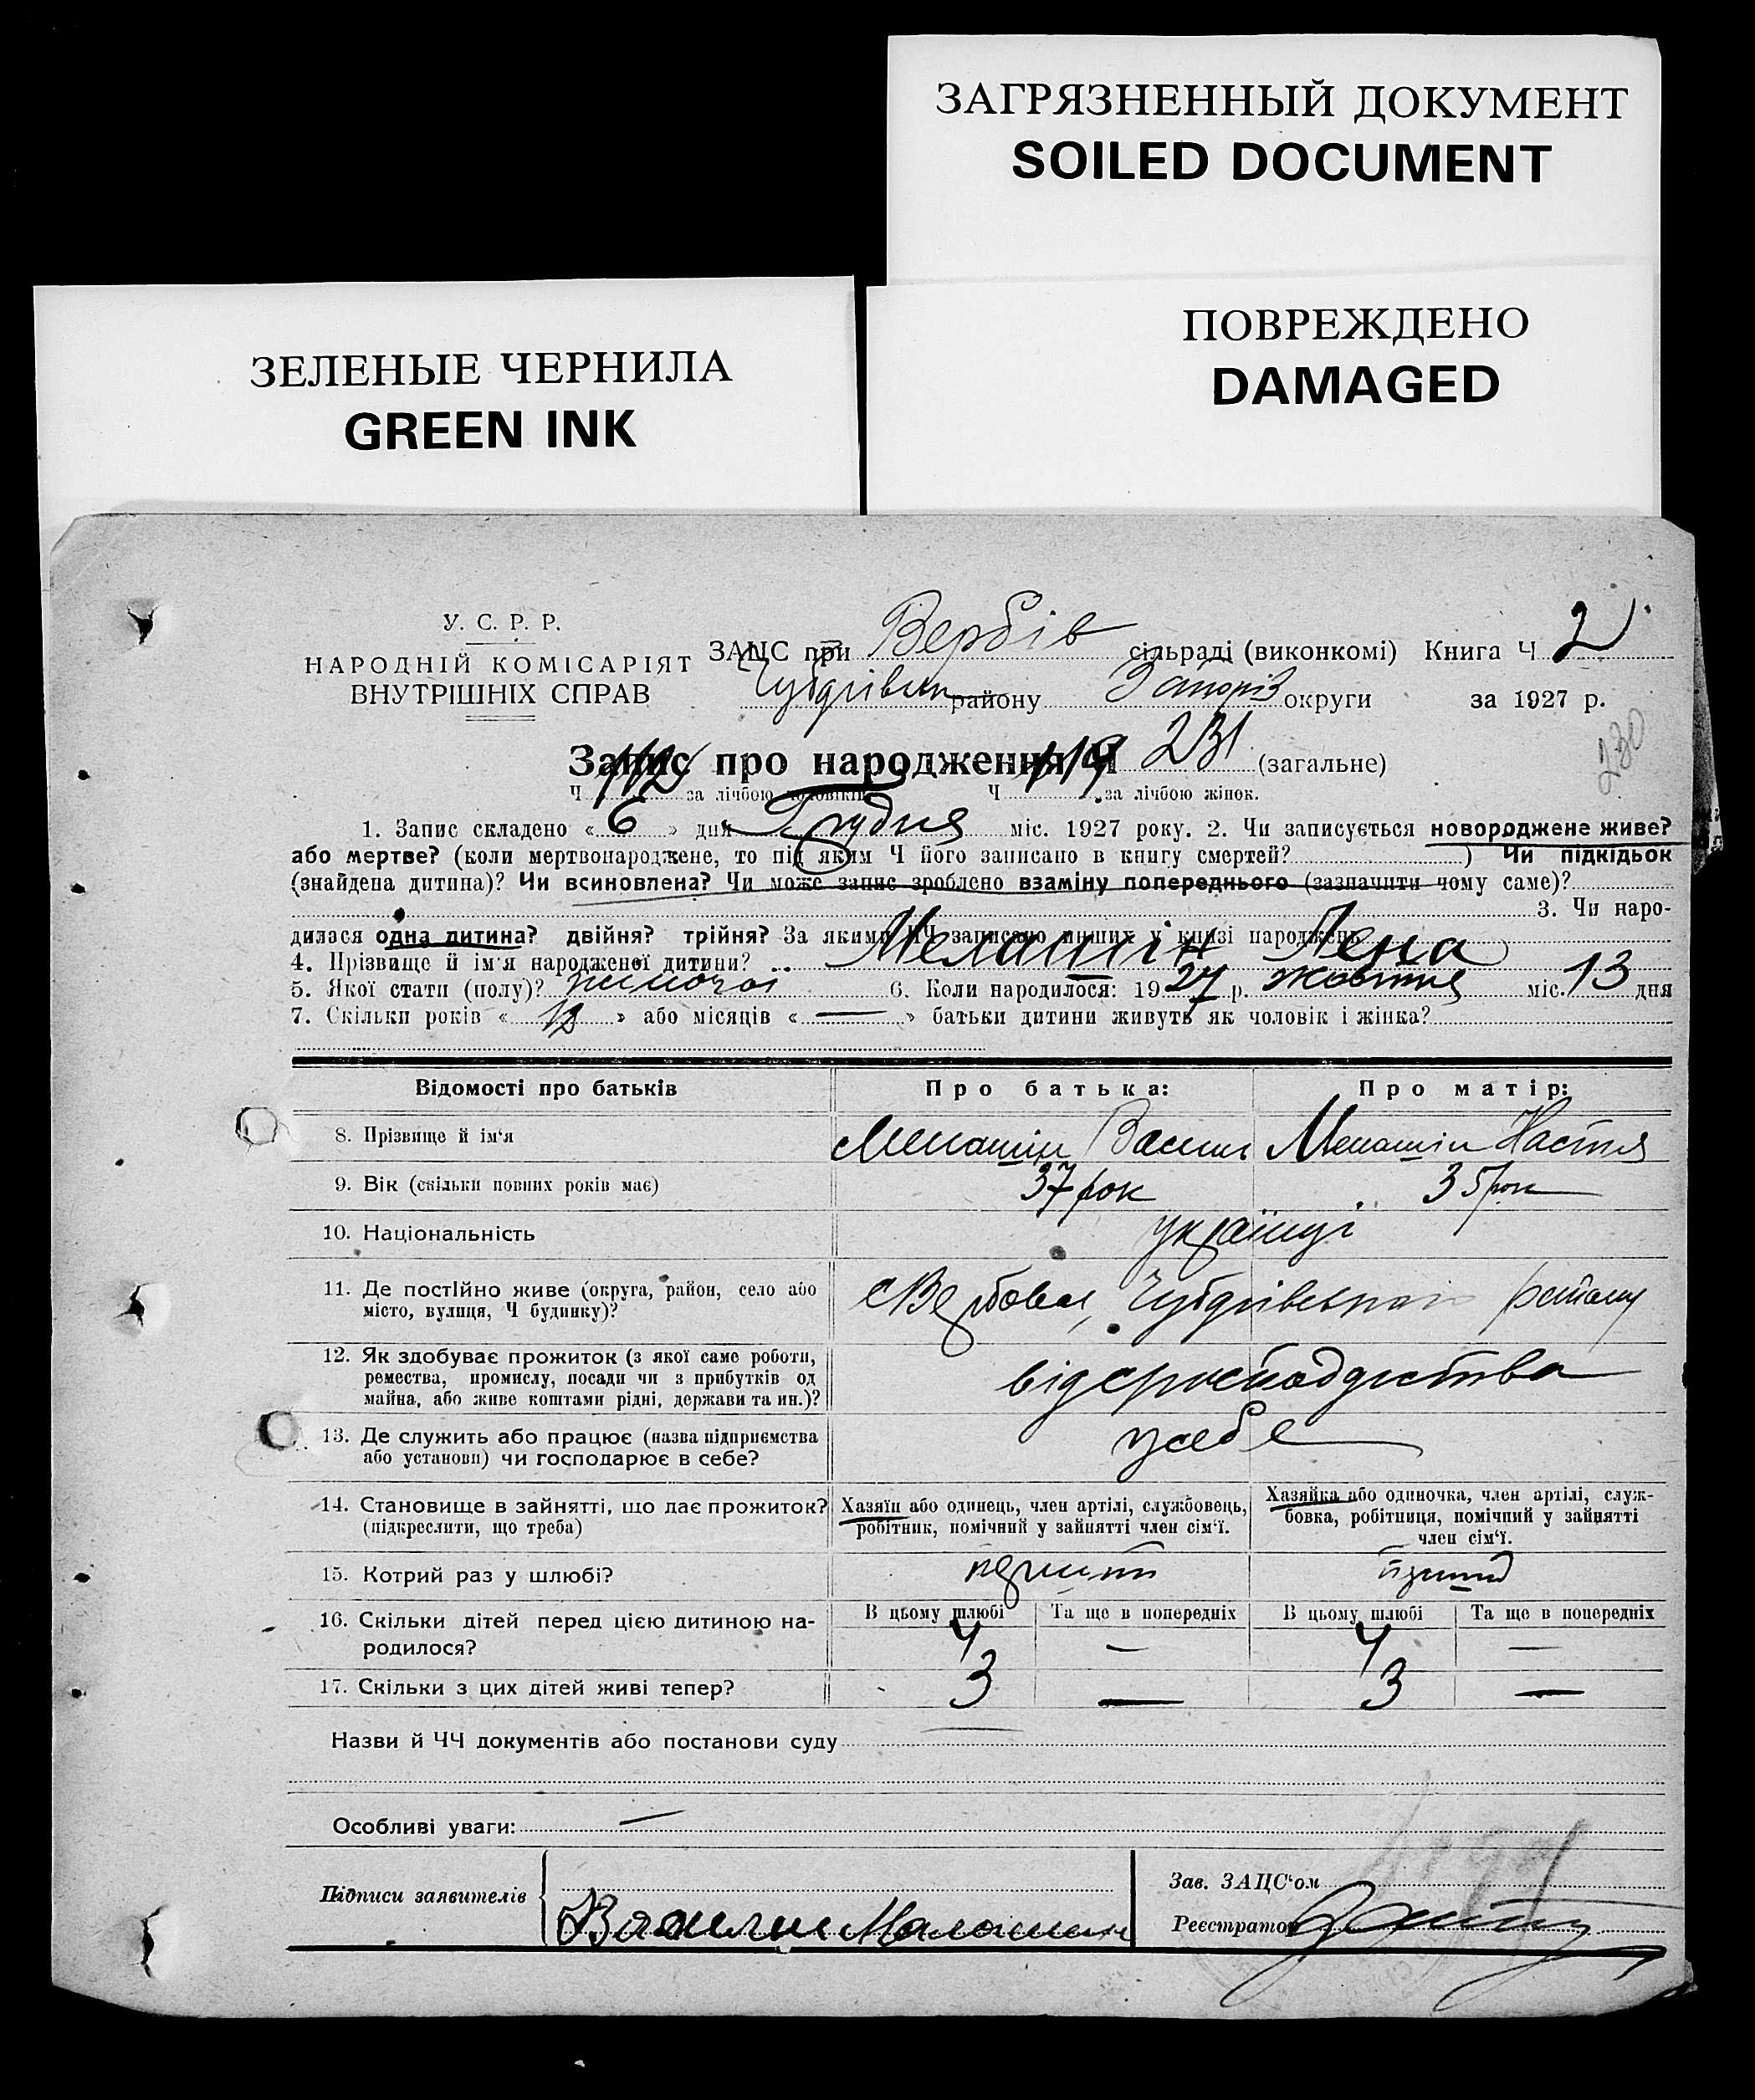 ЗАГРЯЗНЕННЫЙ ДОКУМЕНТ
SOILED DOCUMENT
ПОВРЕЖДЕНО
DAMAGED
ЗЕЛЕНЫЕ ЧЕРНИЛА
GREEN INK
У. С. Р. Р.
НАРОДНІЙ КОМІСАРІЯТ
ВНУТРІШНІХ СПРАВ
ЗАЦС при Вербів сільраді (виконкомі) Книга Ч 2
району Запоріз округи за 1927 р.
230
Запис про народження Ч 231 (загальне)
Ч 112 за лічбою чоловіків Ч 119 за лічбою жінок.
1. Запис складено « 6 » дня Грудня міс. 1927 року. 2. Чи записується новороджене живе?
або мертве? (коли мертвонароджене, то під яким Ч його записано в книгу смертей? ) Чи підкідьок
(знайдена дитина)? Чи всиновлена? Чи може запис зроблено взаміну попереднього (зазначити чому саме)?
3. Чи наро-
дилася одна дитина? двійня? трійня? За якими ЧЧ записано инших у книзі народжень
4. Прізвище й ім'я народженої дитини? Мелашін Лена
5. Якої стати (полу)? жіночої 6. Коли народилося: 1927 р. жовтня міс. 13 дня
7. Скільки років « 12 » або місяців « — » батьки дитини живуть як чоловік і жінка?
Відомості про батьків Про батька: Про матір:
8. Прізвище й ім'я Мелашін Василь Мелашін Настя
9. Вік (скільки повних років має) 37 рок 35 рок
10. Національність українці
11. Де постійно живе (округа, район, село або
місто, вулиця, Ч будинку)? с Вербове, району
12. Як здобуває прожиток (з якої саме роботи,
ремества, промислу, посади чи з прибутків од
майна, або живе коштами рідні, держави та ин.)?
13. Де служить або працює (назва підприємства
або установи) чи господарює в себе? у себе
14. Становище в зайнятті, що дає прожиток?
(підкреслити, що треба)
Хазяїн або одинець, член артілі, службовець,
робітник, помічний у зайнятті член сім'ї.
Хазяйка або одиночка, член артілі, служ-
бовка, робітниця, помічний у зайнятті
член сім'ї.
15. Котрий раз у шлюбі?
16. Скільки дітей перед цією дитиною на-
родилося?
В цьому шлюбі Та ще в попередніх В цьому шлюбі Та ще в попередніх
4 — 4 —
17. Скільки з цих дітей живі тепер? 3 — 3 —
Назви й ЧЧ документів або постанови суду —
Особливі уваги: —
Підписи заявителів
Зав. ЗАЦС'ом
Реєстратор